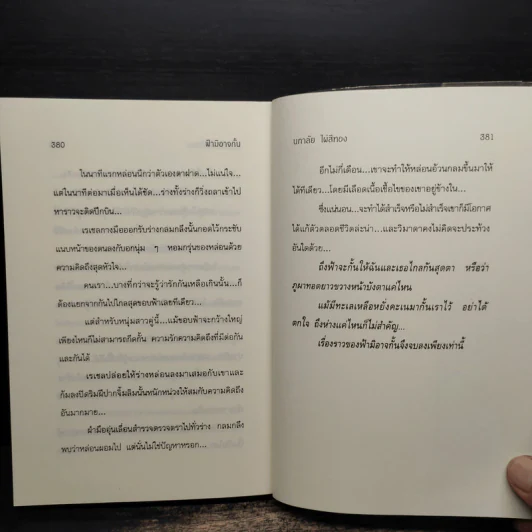 380
ฟ้ามิอาจกั้น
ในนาทีแรกหล่อนนึกว่าตัวเองตาฝาด...ไม่แน่ใจ...
แต่ในนาทีต่อมาเมื่อเห็นได้ชัด...ร่างทั้งร่างก็วิ่งถลาเข้าไป
หาราวจะติดปีกบิน...
เรเชลกางมือออกรับร่างกลมกลึงนั้นกอดไว้กระชับ
แนบหน้าของตนลงกับอกนุ่ม ๆ หอมกรุ่นของหล่อนด้วย
ความคิดถึงสุดหัวใจ...
คนเรา...บางทีกว่าจะรู้ว่ารักกันเหลือเกินนั้น...ก็
ต้องแยกจากกันไปไกลสุดขอบฟ้าเลยทีเดียว...
แต่สำหรับหนุ่มสาวคู่นี้...แม้ขอบฟ้าจะกว้างใหญ่
เพียงไหนก็ไม่สามารถกีดกั้น ความรักความคิดถึงที่มีต่อกัน
และกันได้
เรเชลปล่อยให้ร่างหล่อนลงมาเสมอกับเขาและ
ก้มลงปิดริมฝีปากจิ้มลิ้มนั้นหนักหน่วงให้สมกับความคิดถึง
อันมากมาย...
ฝ่ามืออุ่นเลื่อนสำรวจตรวจตราไปทั่วร่าง กลมกลึง
พบว่าหล่อนผอมไป แต่นั่นไม่ใช่ปัญหาหรอก...
นภาลัย ไผ่สีทอง
381
อีกไม่กี่เดือน...เขาจะทำให้หล่อนอ้วนกลมขึ้นมาให้
ได้ทีเดียว...โดยมีเลือดเนื้อเชื้อไขของเขาอยู่ข้างใน...
ซึ่งแน่นอน...จะทำได้สำเร็จหรือไม่สำเร็จเขาก็มีโอกาส
ได้แก้ตัวตลอดชีวิตล่ะน่า...และวิมาดาคงไม่คิดจะประท้วง
อันใดด้วย...
ถึงฟ้าจะกั้นให้ฉันและเธอไกลกันสุดตา หรือว่า
ภูผาทอดยาวขวางหน้าบังตาแค่ไหน
แม้มีทะเลเหลือหยั่งคะเนมากั้นเราไว้ อย่าได้
ตกใจ ถึงห่างแค่ไหนก็ไม่สำคัญ...
เรื่องราวของฟ้ามิอาจกั้นจึงจบลงเพียงเท่านี้